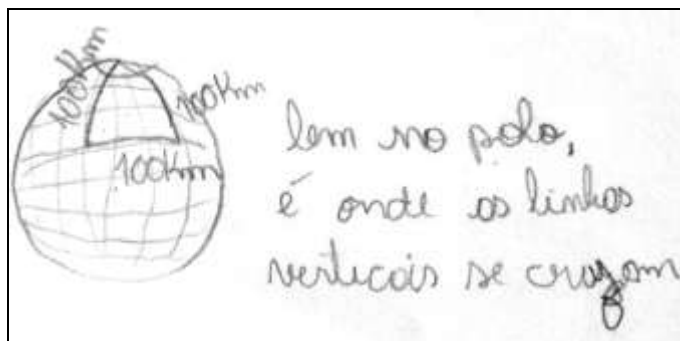 100Km
100Km
100Km
lem no polo,
é onde as linhas
verticais se cruzam